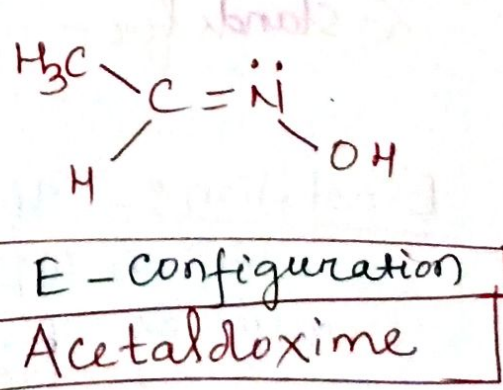 H₃C
C = N̈
H
OH
E - Configuration
Acetaldoxime